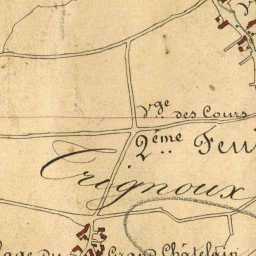 Vge des Cours
2ème Feui
Crignoux
lage du Grand Châtelain